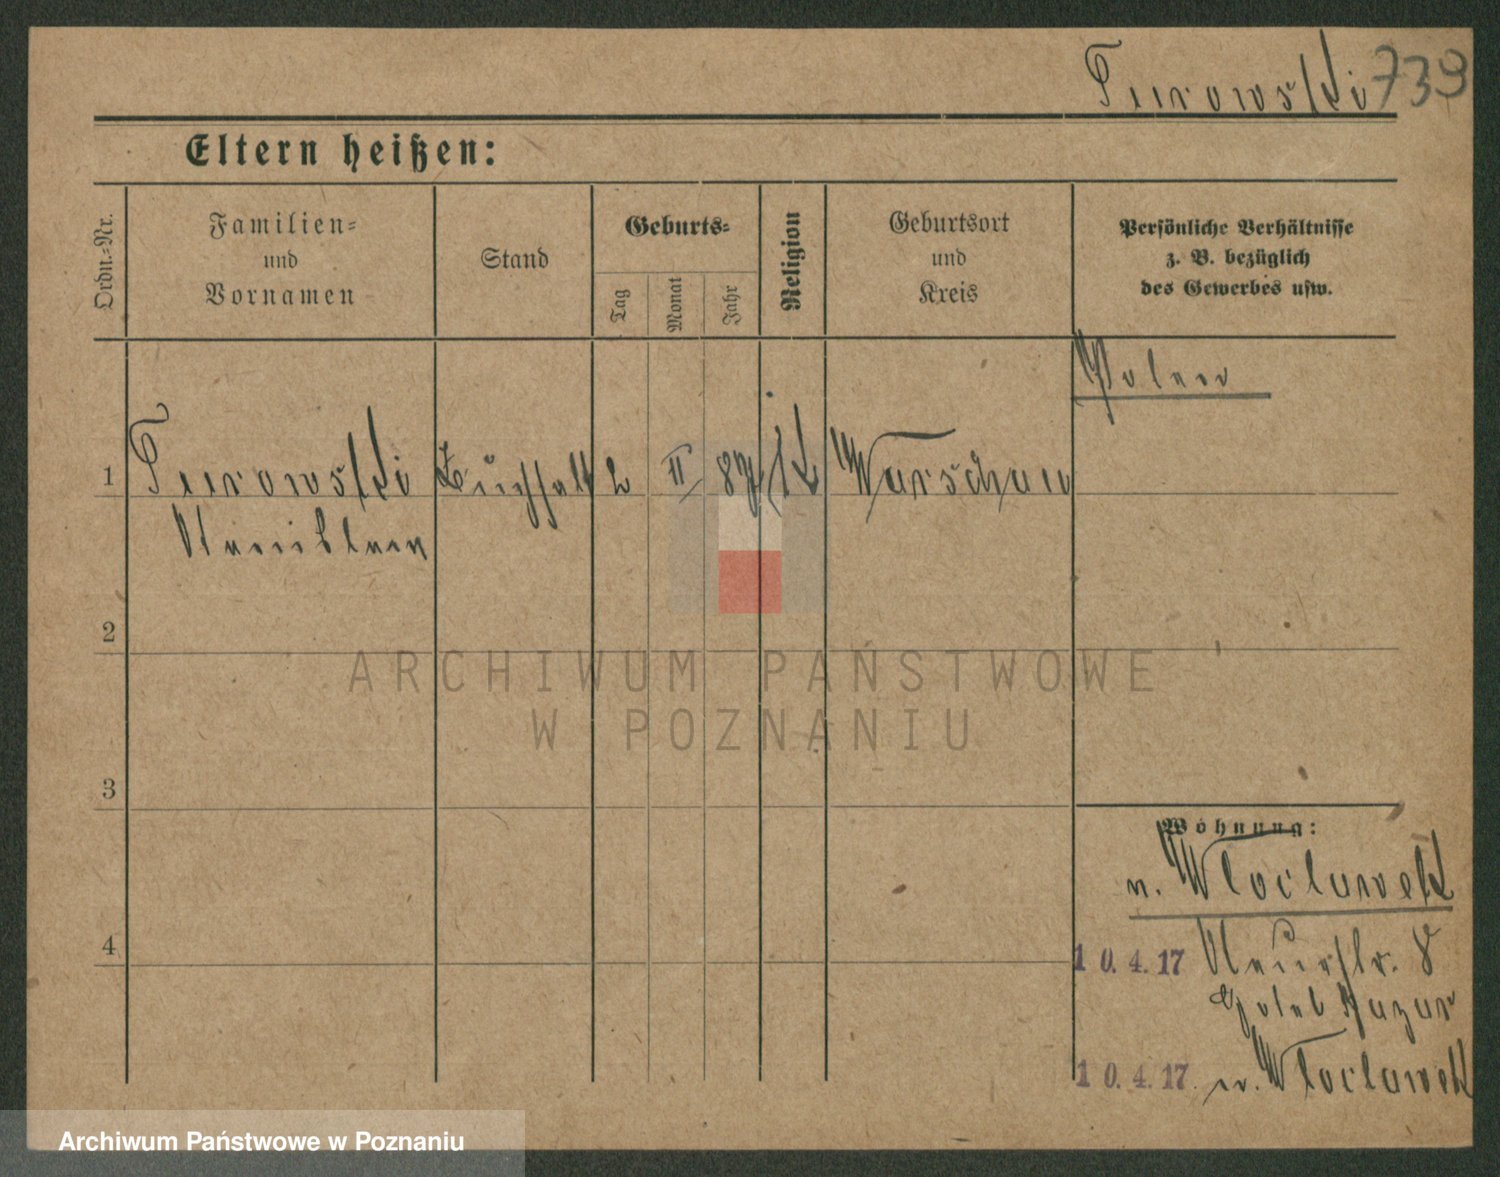 Turowski 739
Eltern heißen:
Ordn.-Nr.
Familien-
und
Vornamen
Stand
Geburts-
Tag
Monat
Jahr
Religion
Geburtsort
und
Kreis
Persönliche Verhältnisse
z. B. bezüglich
des Gewerbes usw.
Polen
1
Turowski
Buchhalt
2
II
87
Warschau
2
ARCHIWUM PAŃSTWOWE
W POZNANIU
3
Wohnung:
n. Wloclawek
4
10.4.17 Neuestr. 8
10.4.17. n. Wloclawek
Archiwum Państwowe w Poznaniu